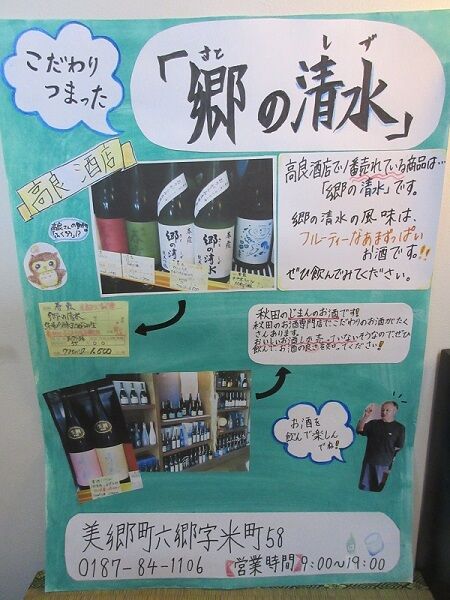 こだわり
つまった
「郷の清水」
さと
しず
高良 酒店
高良酒店で1番売れている商品は…
「郷の清水」です。
郷の清水の風味は、
フルーティーなあまずっぱい
お酒です。!!
ぜひ飲んでみてください。
春霞
郷の清水
秋田のじまんのお酒です!!
秋田のお酒専門店でこだわりのお酒がたく
さんあります。
おいしいお酒しか売っていないそうなので、ぜひ
飲んで、お酒の良さを知ってください!
お酒を
飲んで楽しん
でね!!
美郷町六郷字米町58
0187-84-1106 【営業時間】9:00〜19:00